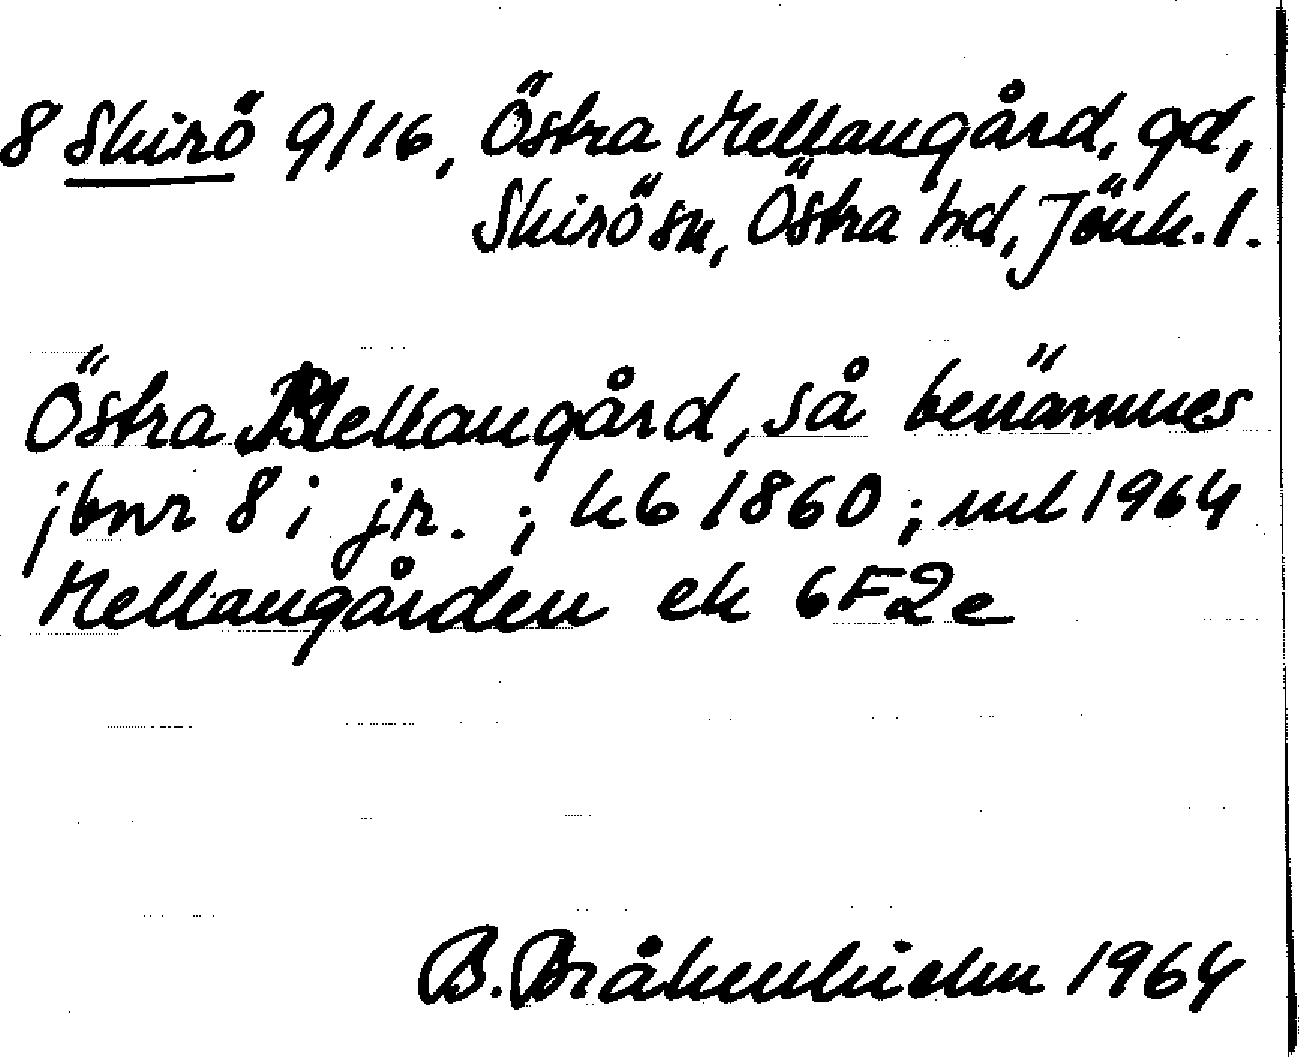 8 Skirö 9/16, Östra Mellangård, gd,
Skirö sn, Östra hd, Jönk. l.
Östra Mellangård, så benämnes
jbnr 8 i jr. ; kb 1860 ; ml 1964
Mellangården ek 6F2e
B. 1964